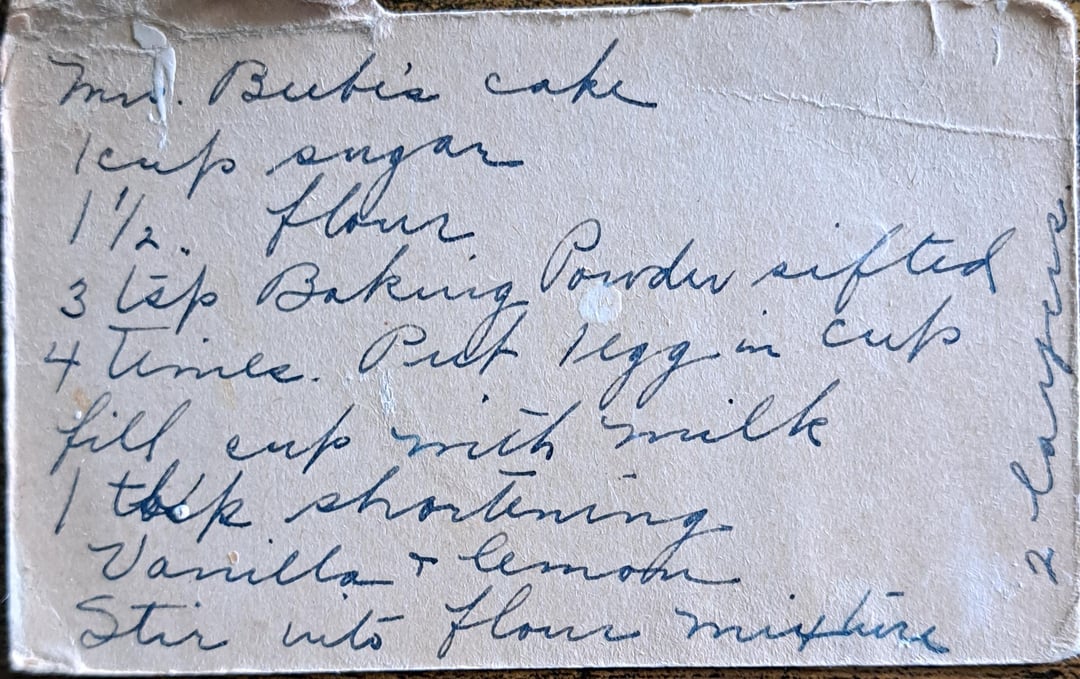 Mrs. Beebe's cake
1 cup sugar
1 1/2 " flour
3 tsp Baking Powder sifted
4 times. Put 1 egg in cup
fill cup with milk
1 shortening
Vanilla + lemon
Stir into flour mixture
2 layers.